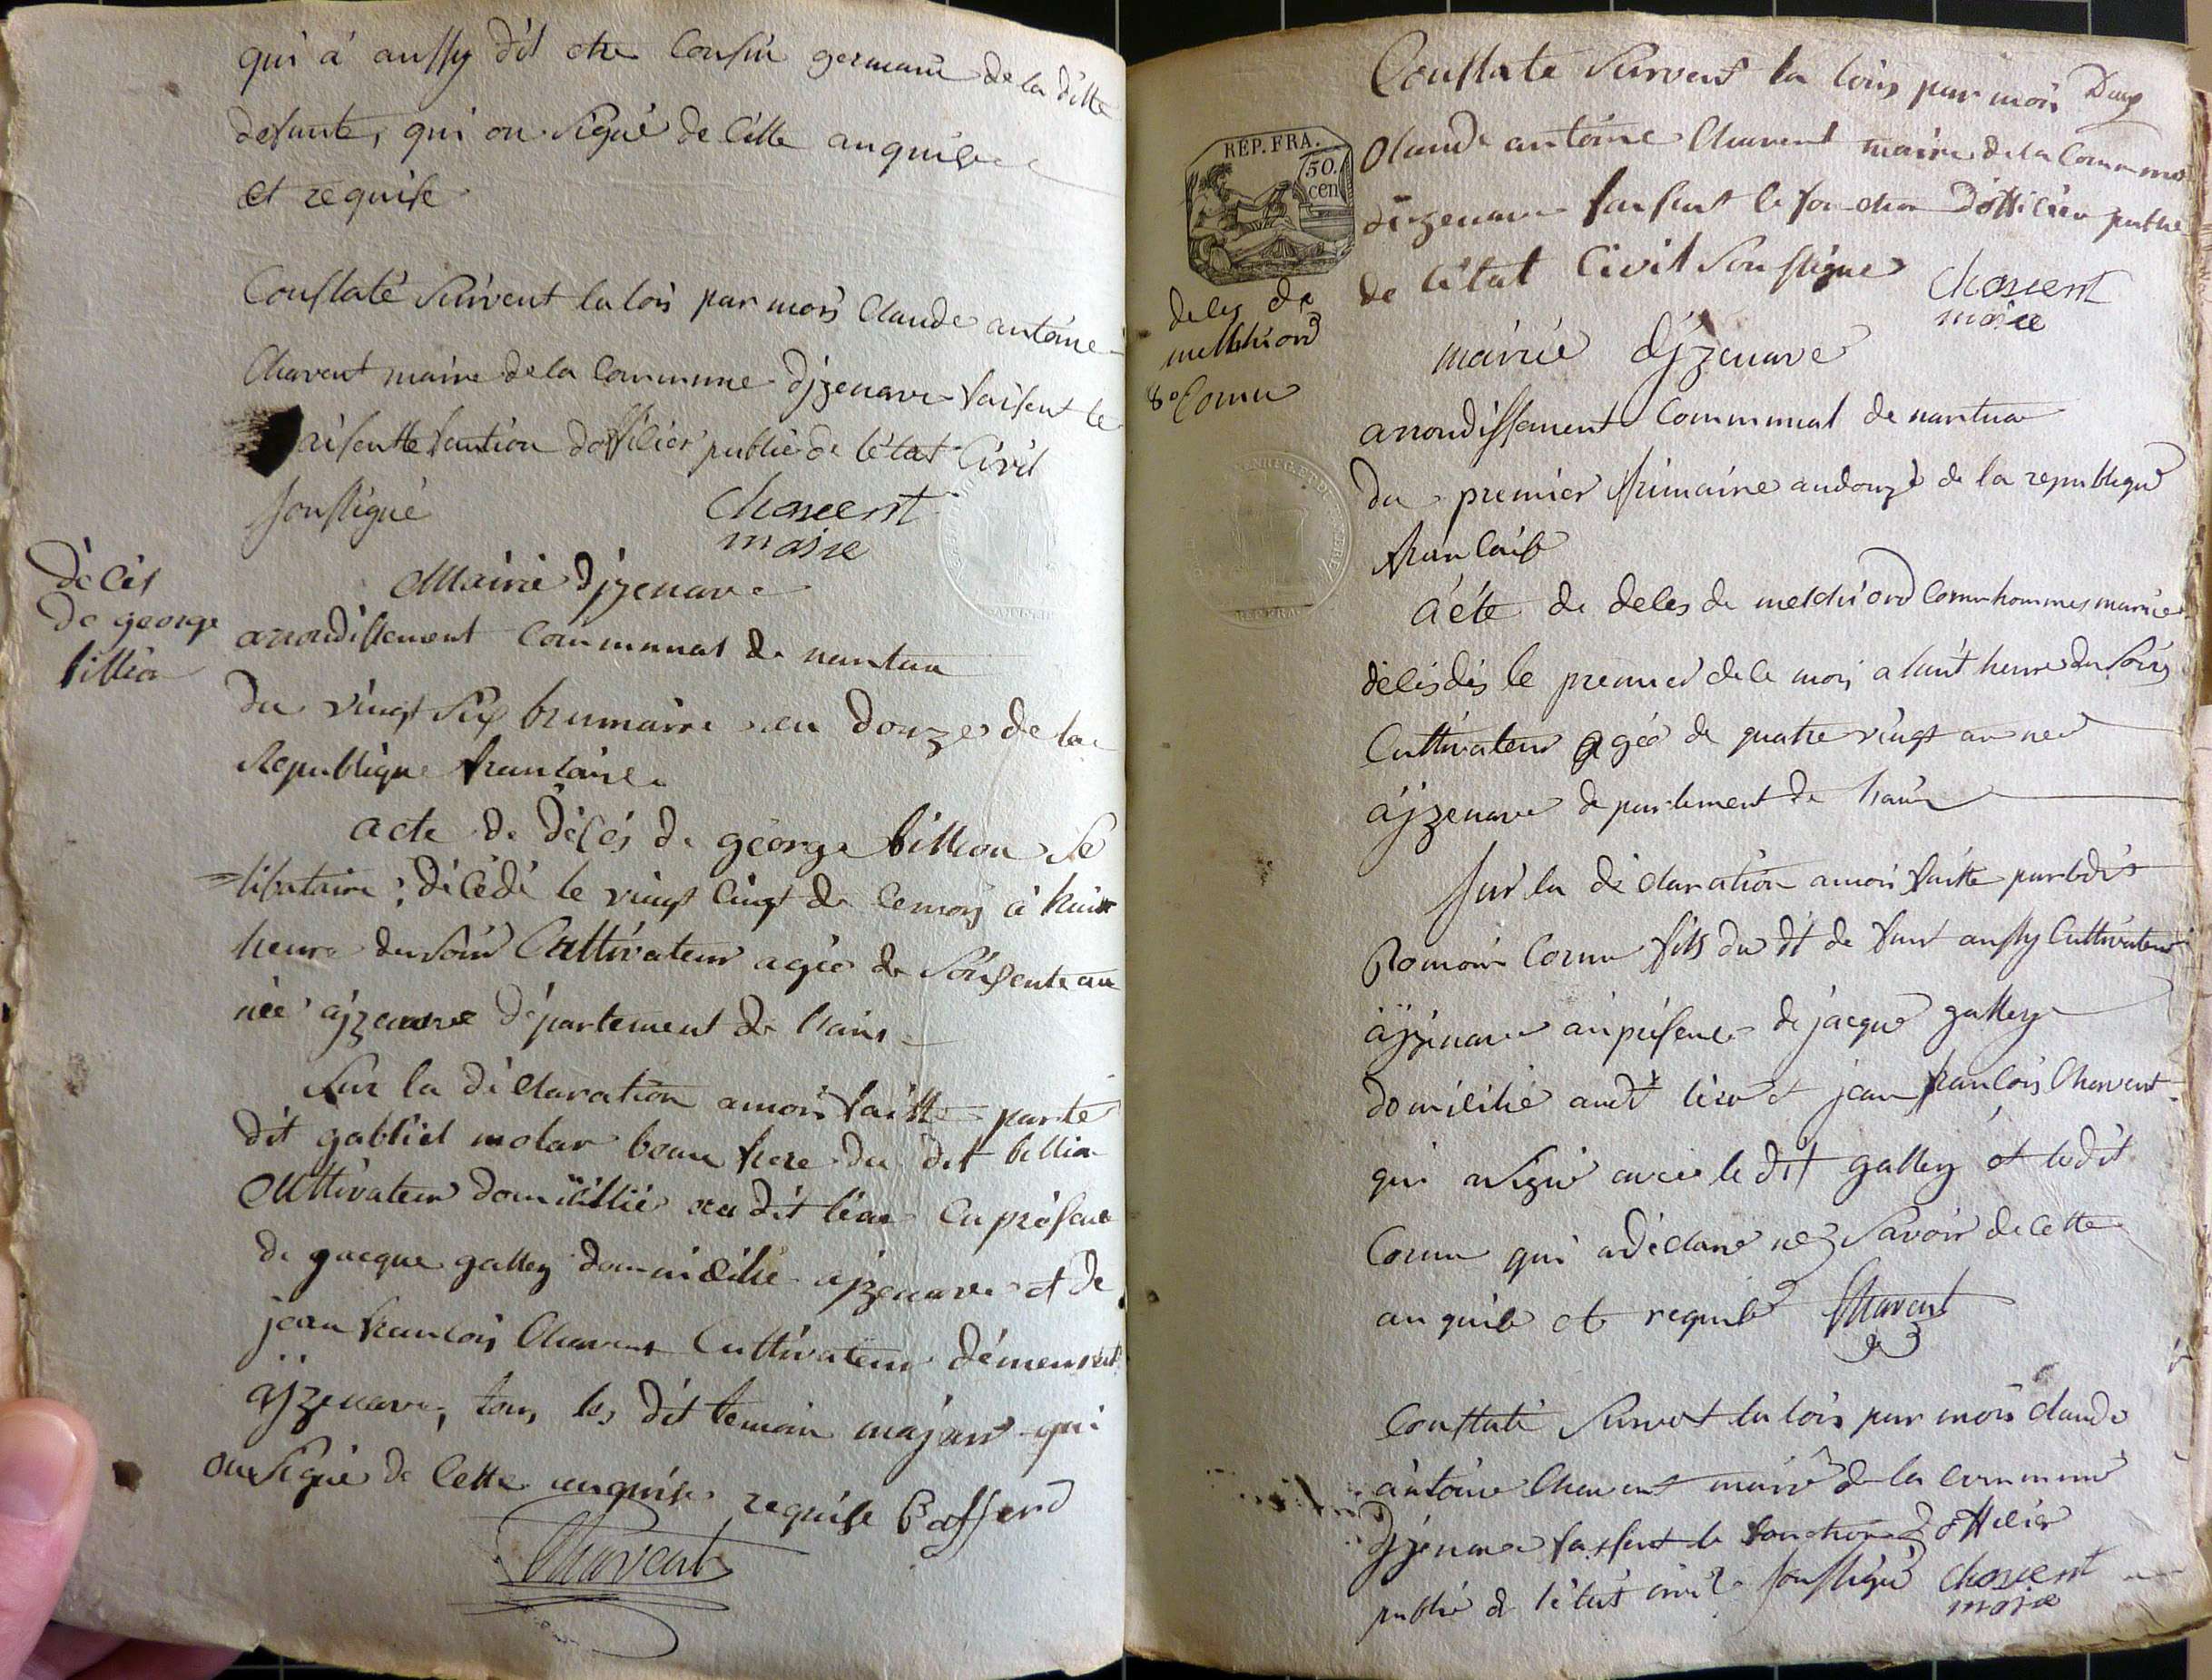 qui a aussy dit etre Cousin germain de la ditte
defunte, qui on signé de Cette anquise
et requise
Constaté suivent la lois par mois Claude antoine
Chavent maire de la Commune djzenave faisent le
faisentte fontion dofficier public de létat Civil
soussigné
Chavent
maire
décés
de george
billion
Mairie djzenave
arrondissement Communal de nantua
du vingt six brumaire an douze de la
Republique francaise
acte de décés de george billion se
libataire; décédé le vingt cinq de ce mois à huit
heure du soir Cultivateur ageé de soisente an
née ajzenave département de hain
Sur la déclaration a mois faitte par le
dit gabriel molar beau frere du dit billion
Cultivateur domicillié au dit lieu en présence
de jacque galley domicilié ajzenave et de
jean francois Chavent Cultivateur démeurant
ajzenave, tous les dit temoin majeur qui
on signé de Cette anquise requise Bafferd
Chavent
Constaté survent la lois par mois
Claude antoine Chavent maire de la Commune
dizenave faisent le fonction dofficier public
de létat Civil soussigné
Chavent
maire
REP. FRA.
50.
cen
deles de
melchiord
Cornu
mairie djzenave
arrondissement Communal de nantua
du premier frimaire an douze de la republique
francaise
acte de deles de melchiord Cornu hommes marieé
délédés le premier de le mois a huit heure du soir
Cultivateur ageé de quatre vingt an neé
ajzenave departement de hain
sur la déclaration a mois faitte par
Romain Cornu fils du dt defunt aussy Cultivateur
ajzenave an présence de jacque galley
domicilié audt lieu et jean francois Chavent
qui a signé avec le dit galley et le dit
Cornu qui a déclaré ne savoir de cette
anquise et requise Chavent
Constaté survent la lois par mois claude
antoine Chavent maire de la commune
djzenave faisent le fonction d officier
public de létat civil soussigné
Chavent
maire